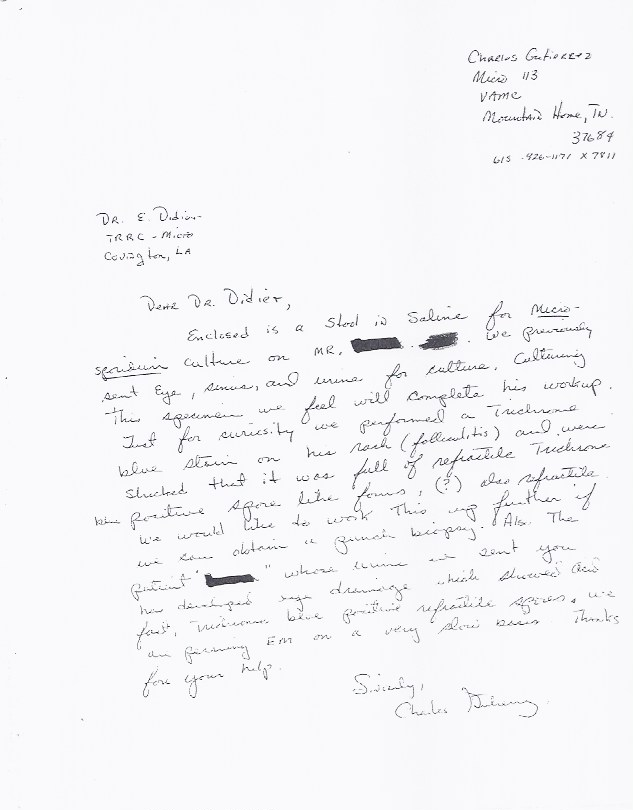 Charles Gutierrez
Micro 113
VAMC
Mountain Home, TN.
37684
615-926-1171 X 7811
DR. E. Didier
TRRC - Micro
Covington, LA
Dear Dr. Didier,
Enclosed is a Stool in Saline for Micro-
sporidium culture on MR. . We previously
sent Eye, sinus, and urine for culture. Culturing
This specimen we feel will complete his workup.
Just for curiosity we performed a Trichrome
blue stain on his rash (folliculitis) and were
shocked that it was full of refractile Trichrome
blue positive spore like forms, (?) also refractile.
We would like to work This up further if
we can obtain a punch biopsy. Also The
patient " " whose urine we sent you
has developed eye drainage which showed acid
fast, Trichrome blue positive refractile spores, we
are pursuing EM on a very slow basis Thanks
for your help.
Sincerely,
Charles Gutierrez